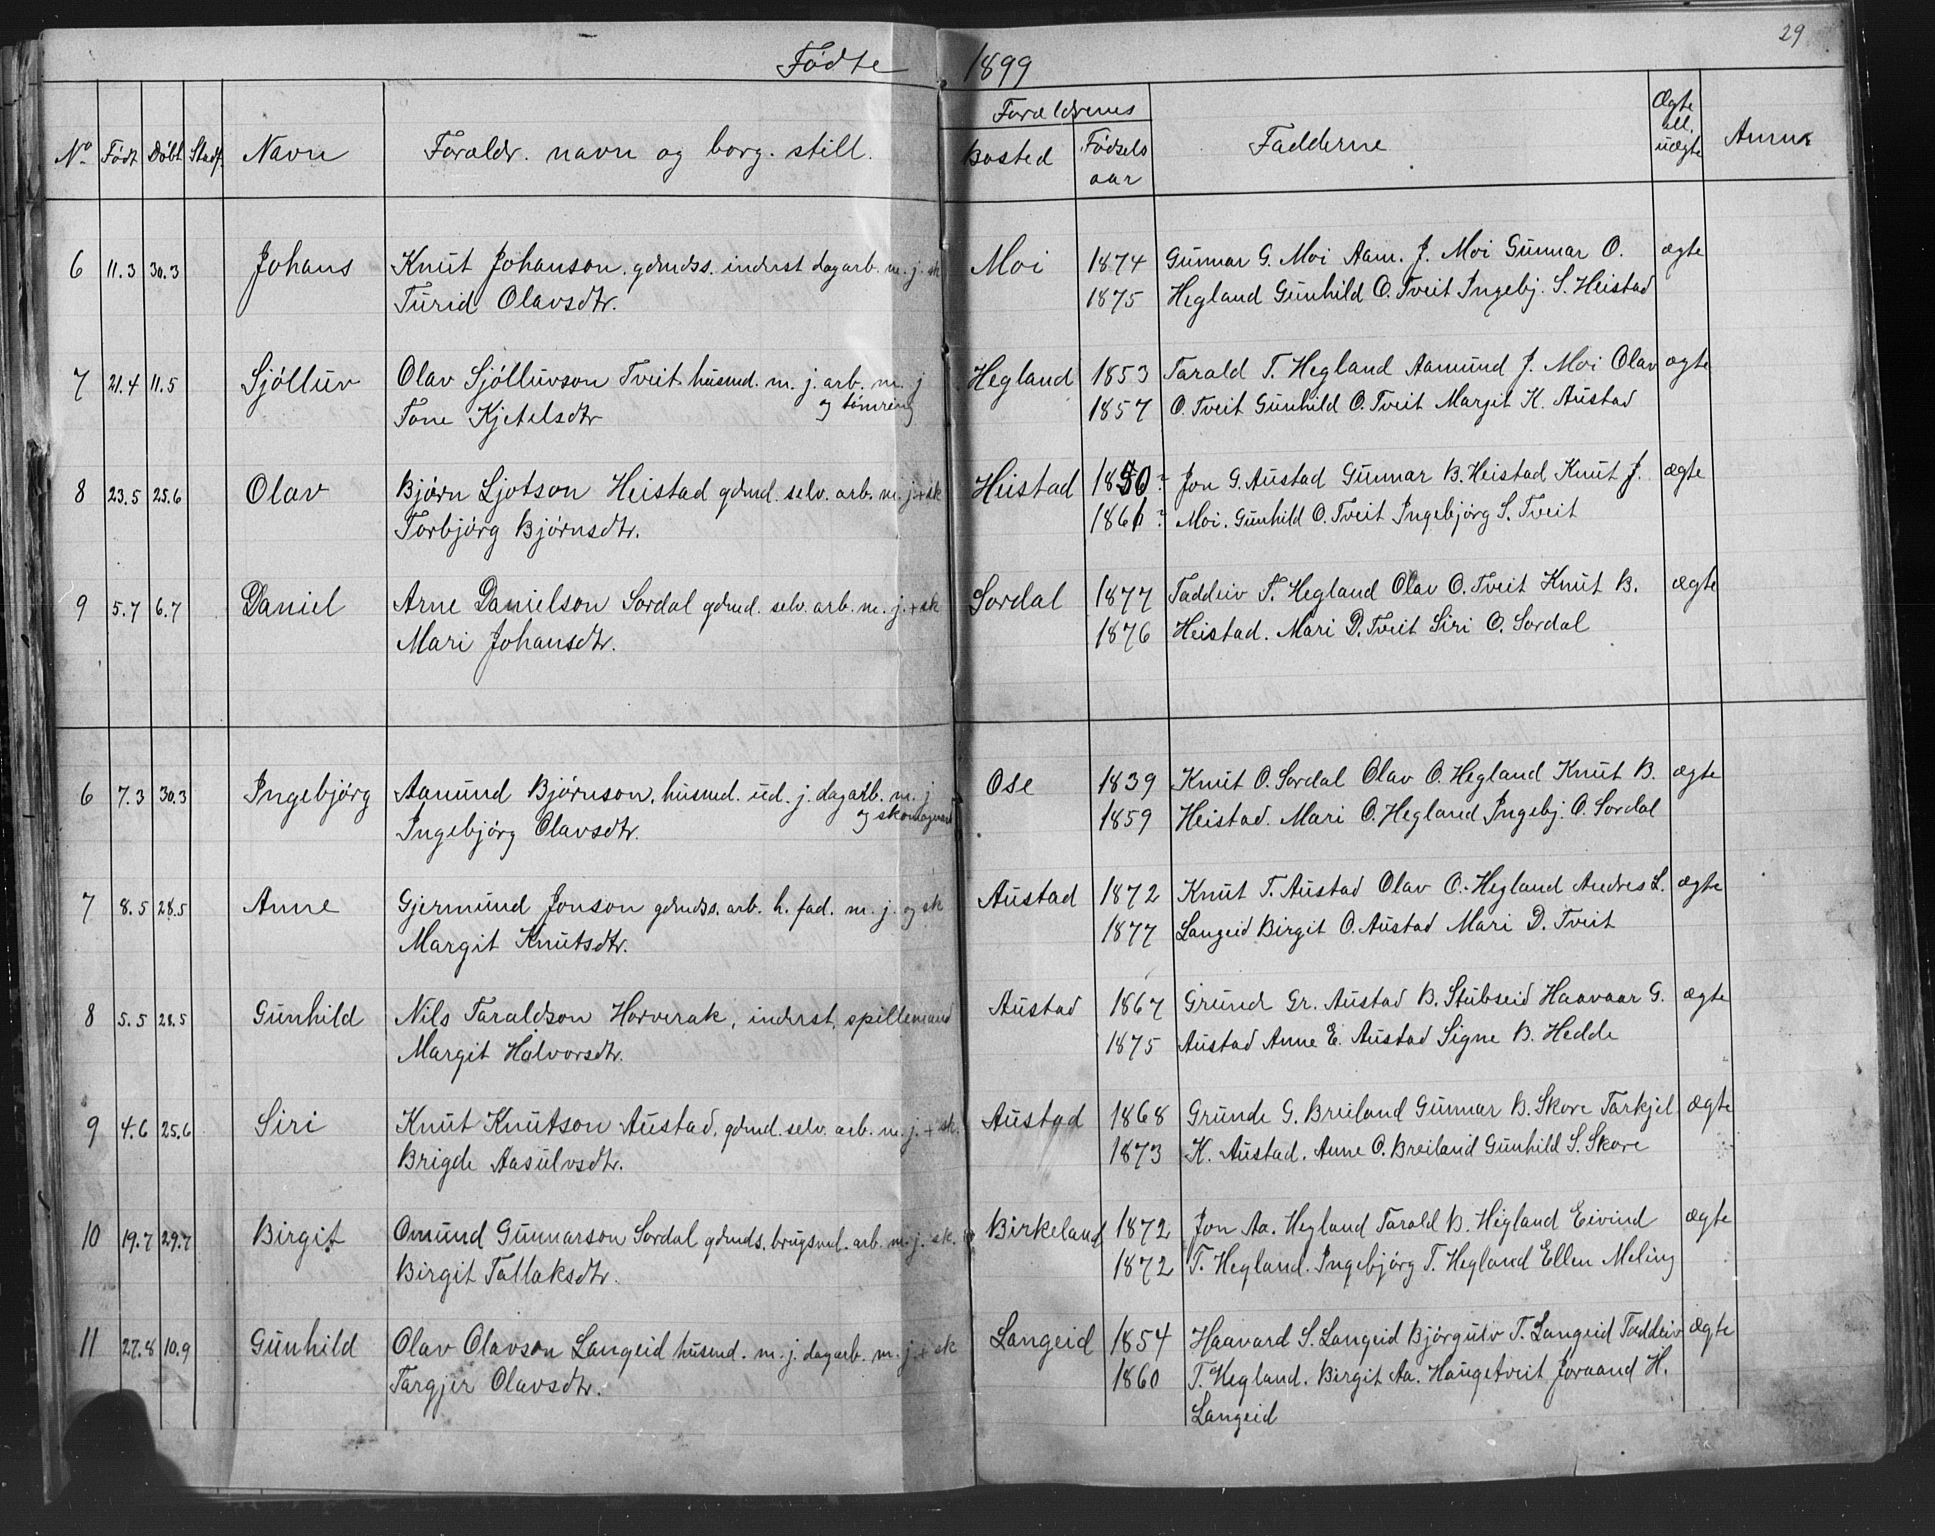 29
Födte 1899
No Født Döbt Stadf. Navn Forældr. navn og borg. still. Forældrenes Bosted Fødsels aar Fadderne Ægte ell. uægte Anmk
6 11.3 30.3 Johans Knut Johanson, gdmdss. inderst dagarb. m. j. sk Moi 1874 Gunnar G. Moi Aam. J. Moi Gunnar O. ægte
Turid Olavsdtr. 1875 Hegland Gunhild O. Tveit Ingebj. S. Heistad
7 21.4 11.5 Sjölluv Olav Sjölluvson Tveit husmd. m. j. arb. m. j Hegland 1853 Tarald T. Hegland Aamund J. Moi Olav ægte
og tömring
Tone Kjetelsdtr 1857 O. Tveit Gunhild O. Tveit Margit K. Austad
8 23.5 25.6 Olav Bjørn Ljotson Heistad gdmd. selv. arb. m. j. + sk Heistad 1850? Jon G. Austad Gunnar B. Heistad Knut J. ægte
Torbjörg Bjørnsdtr. 1861? Moi. Gunhild O. Tveit Ingebjörg S. Tveit
9 5.7 6.7 Daniel Arne Danielson Sordal gdmd. selv. arb. m. j. + sk Sordal 1877 Taddeiv T. Hegland Olav O. Tveit Knut B. ægte
Mari Johansdtr. 1876 Heistad. Mari D. Tveit Siri O. Sordal
6 7.3 30.3 Ingebjörg Aamund Bjørnson, husmd. ud. j. dagarb. m. j Ose 1839 Knut O. Sordal Olav O. Hegland Knut B. ægte
og skomagerarb
Ingebjörg Olavsdtr. 1859 Heistad. Mari O. Hegland Ingebj. O. Sordal
7 8.5 28.5 Anne Gjermund Jonson gdmdss. arb. h. fad. m. j. og sk Austad 1872 Knut T. Austad Olav O. Hegland Andres L. ægte
Margit Knutsdtr. 1877 Langeid Birgit O. Austad Mari D. Tveit
8 5.5 28.5 Gunhild Nils Taraldson Horverak, inderst, spillemand Austad 1867 Grund Gr. Austad B. Stubseid Haavaar G. ægte
Margit Halvorsdtr. 1875 Austad Anne E. Austad Signe B. Hedde
9 4.6 25.6 Siri Knut Knutson Austad, gdmd. selv. arb. m. j. + sk. Austad 1868 Grunde G. Breiland Gunnar B. Skore Tarkjel ægte
Brigde Aasulvsdtr. 1873 K. Austad. Anne O. Breiland Gunhild S. Skore
10 19.7 29.7 Birgit Omund Gunnarson Sordal gdmds. brugsmd. arb. m. j. sk. Birkeland 1872 Jon Aa. Hegland Tarald B. Hegland Eivind ægte
Birgit Tallaksdtr. 1872 T. Hegland. Ingebjörg T. Hegland Ellen Meling
11 27.8 10.9 Gunhild Olav Olavson Langeid husmd. m. j. dagarb. m. j. + sk Langeid 1854 Haavard S. Langeid Bjórgulv T. Langeid Taddeiv ægte
Targjer Olavsdtr. 1860 T. Hegland. Birgit Aa. Haugetveit Joraand H.
Langeid